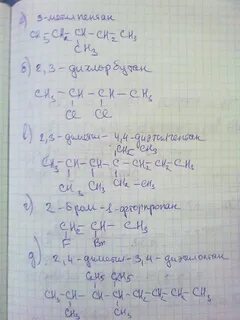 а) 3-метилпентан
CH3-CH2-CH-CH2-CH3
CH3
б) 2,3-дихлорбутан
CH3-CH-CH-CH3
Cl Cl
в) 2,3-диметил-4,4-диэтилгептан
CH2-CH3
CH3-CH-CH-C-CH2-CH2-CH3
CH3 CH3 CH2-CH3
г) 2-бром-1-фторпропан
CH2-CH-CH3
F Br
д) 2,4-диметил-3,4-диэтилоктан
C2H5 C2H5
CH3-CH-CH-C-CH2-CH2-CH2-CH3
CH3 CH3